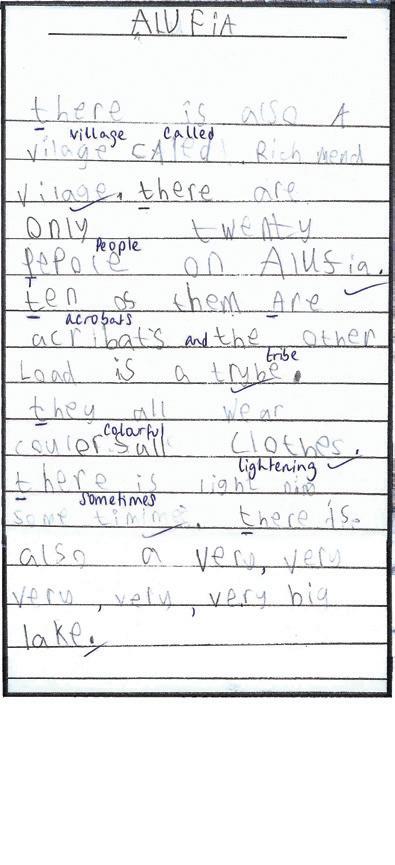 ALUFiA
there is also A
village called
vilage cAled Rich mend
vilage. there are
only twenty
People
pepole on Alufia.
T
ten os them Are
acrobats
acribats and the other
tribe
Load is a trybe.
they all wear
colourful
coulersull clothes.
lightening
there is light nin
sometimes
some timime. there is
also a very, very
very, very, very big
lake.